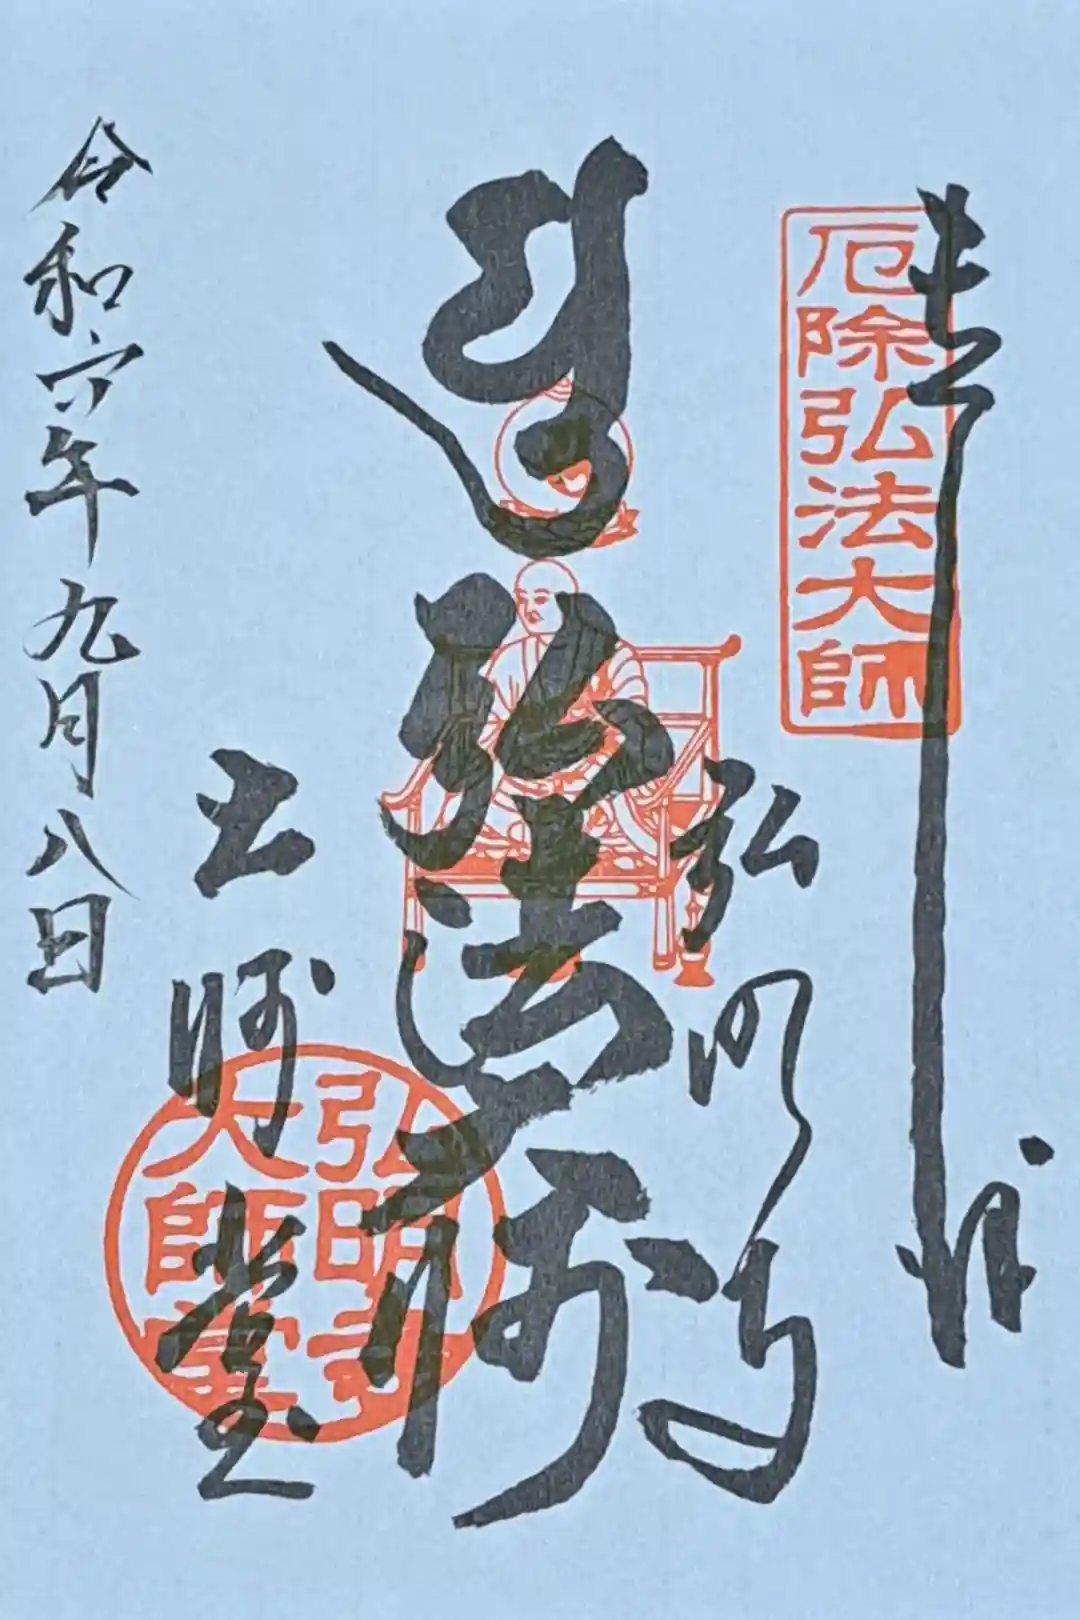 奉拝
厄除弘法大師
弘明寺
弘法大師
大師堂
弘明寺
大師堂
令和六年九月八日